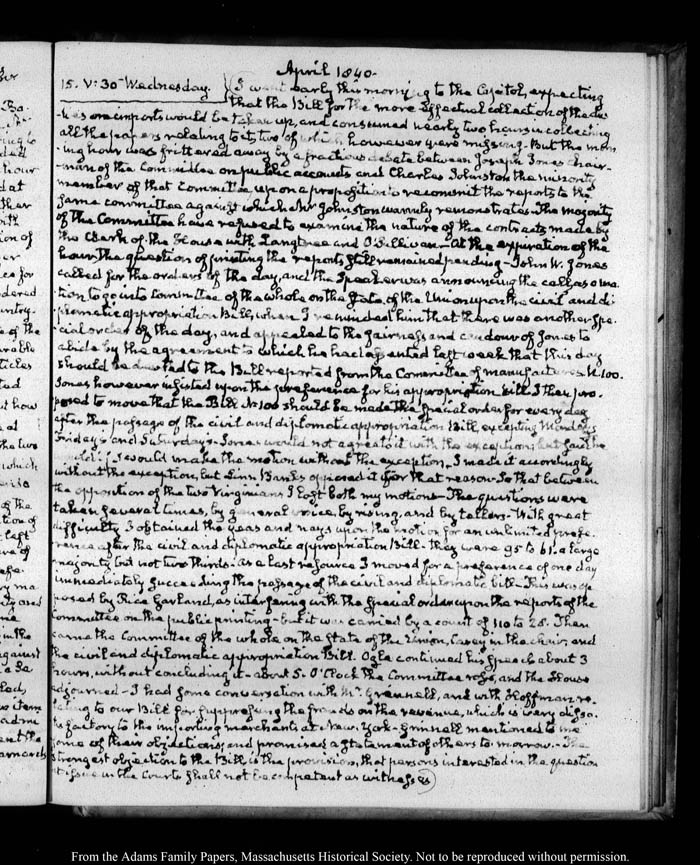 April 1840.
15. V: 30 Wednesday. I went early this morning to the Capitol, expecting
that the Bill for the more effectual collection of the du-
-ties on imports would be taken up, and consumed nearly two hours in collecting
all the papers relating to it, two of which however were missing. But the morn
-ing hour was frittered away by a fractious debate between Joseph Jones chair-
-man of the Committee on public accounts and Charles Johnston the minority
member of that Committee upon a proposition to recommit the reports to the
same committee against which Mr Johnston warmly remonstrates. The majority
of the Committee have refused to examine the nature of the contracts made by
the Clerk of the House with Langtree and O'Sullivan. At the expiration of the
hour the question of printing the reports still remained pending. John W. Jones
called for the orders of the day, and the Speaker was announcing the call as a mo
-tion to go into Committee of the whole on the State of the Union upon the civil and di
-plomatic appropriation Bill, when I reminded him that there was another spe
-cial order of the day, and appealed to the fairness and candour of Jones to
abide by the agreement to which he had assented last week that this day
should be devoted to the Bill reported from the Committee of manufactures N. 100.
Jones however insisted upon the preference for his appropriation bill. I then pro-
posed to move that the Bill No 100 should be made the special order for every day
after the passage of the civil and diplomatic appropriation Bill, excepting Mondays
Fridays and Saturdays. Jones would not agree to it with the exception, but said he
would if I would make the motion without the exception, I made it accordingly
without the exception, but Linn Banks opposed it for that reason. So that between
the opposition of the two Virginians I lost both my motions. The questions were
taken several times, by general voice, by rising, and by tellers. With great
difficulty I obtained the yeas and nays upon the motion for an unlimited prefe
-rence after the civil and diplomatic appropriation Bill. they were 95 to 61. a large
majority but not two thirds. As a last resource I moved for a preference of one day
immediately succeeding the passage of the civil and diplomatic bill. This was op
posed by Rice Garland, as interfering with the special order upon the reports of the
Committee on the public printing. but it was carried by a count of 110 to 28. Then
came the Committee of the whole on the State of the Union, Casey in the chair, and
the civil and diplomatic appropriation Bill. Ogle continued his speech about 3
hours, without concluding it. about 5. O'Clock the Committee rose, and the House
adjourned. I had some conversation with Mr. Grennell, and with Hoffman re-
-lating to our Bill for suppressing the frauds on the revenue, which is very dissa-
-tisfactory to the importing merchants at New-York. Grinnell mentioned to me
some of their objections, and promised a statement of others to-morrow. The
strongest objection to the Bill is the provision, that persons interested in the question
at issue in the Courts shall not be competent as witnesses
From the Adams Family Papers, Massachusetts Historical Society. Not to be reproduced without permission.